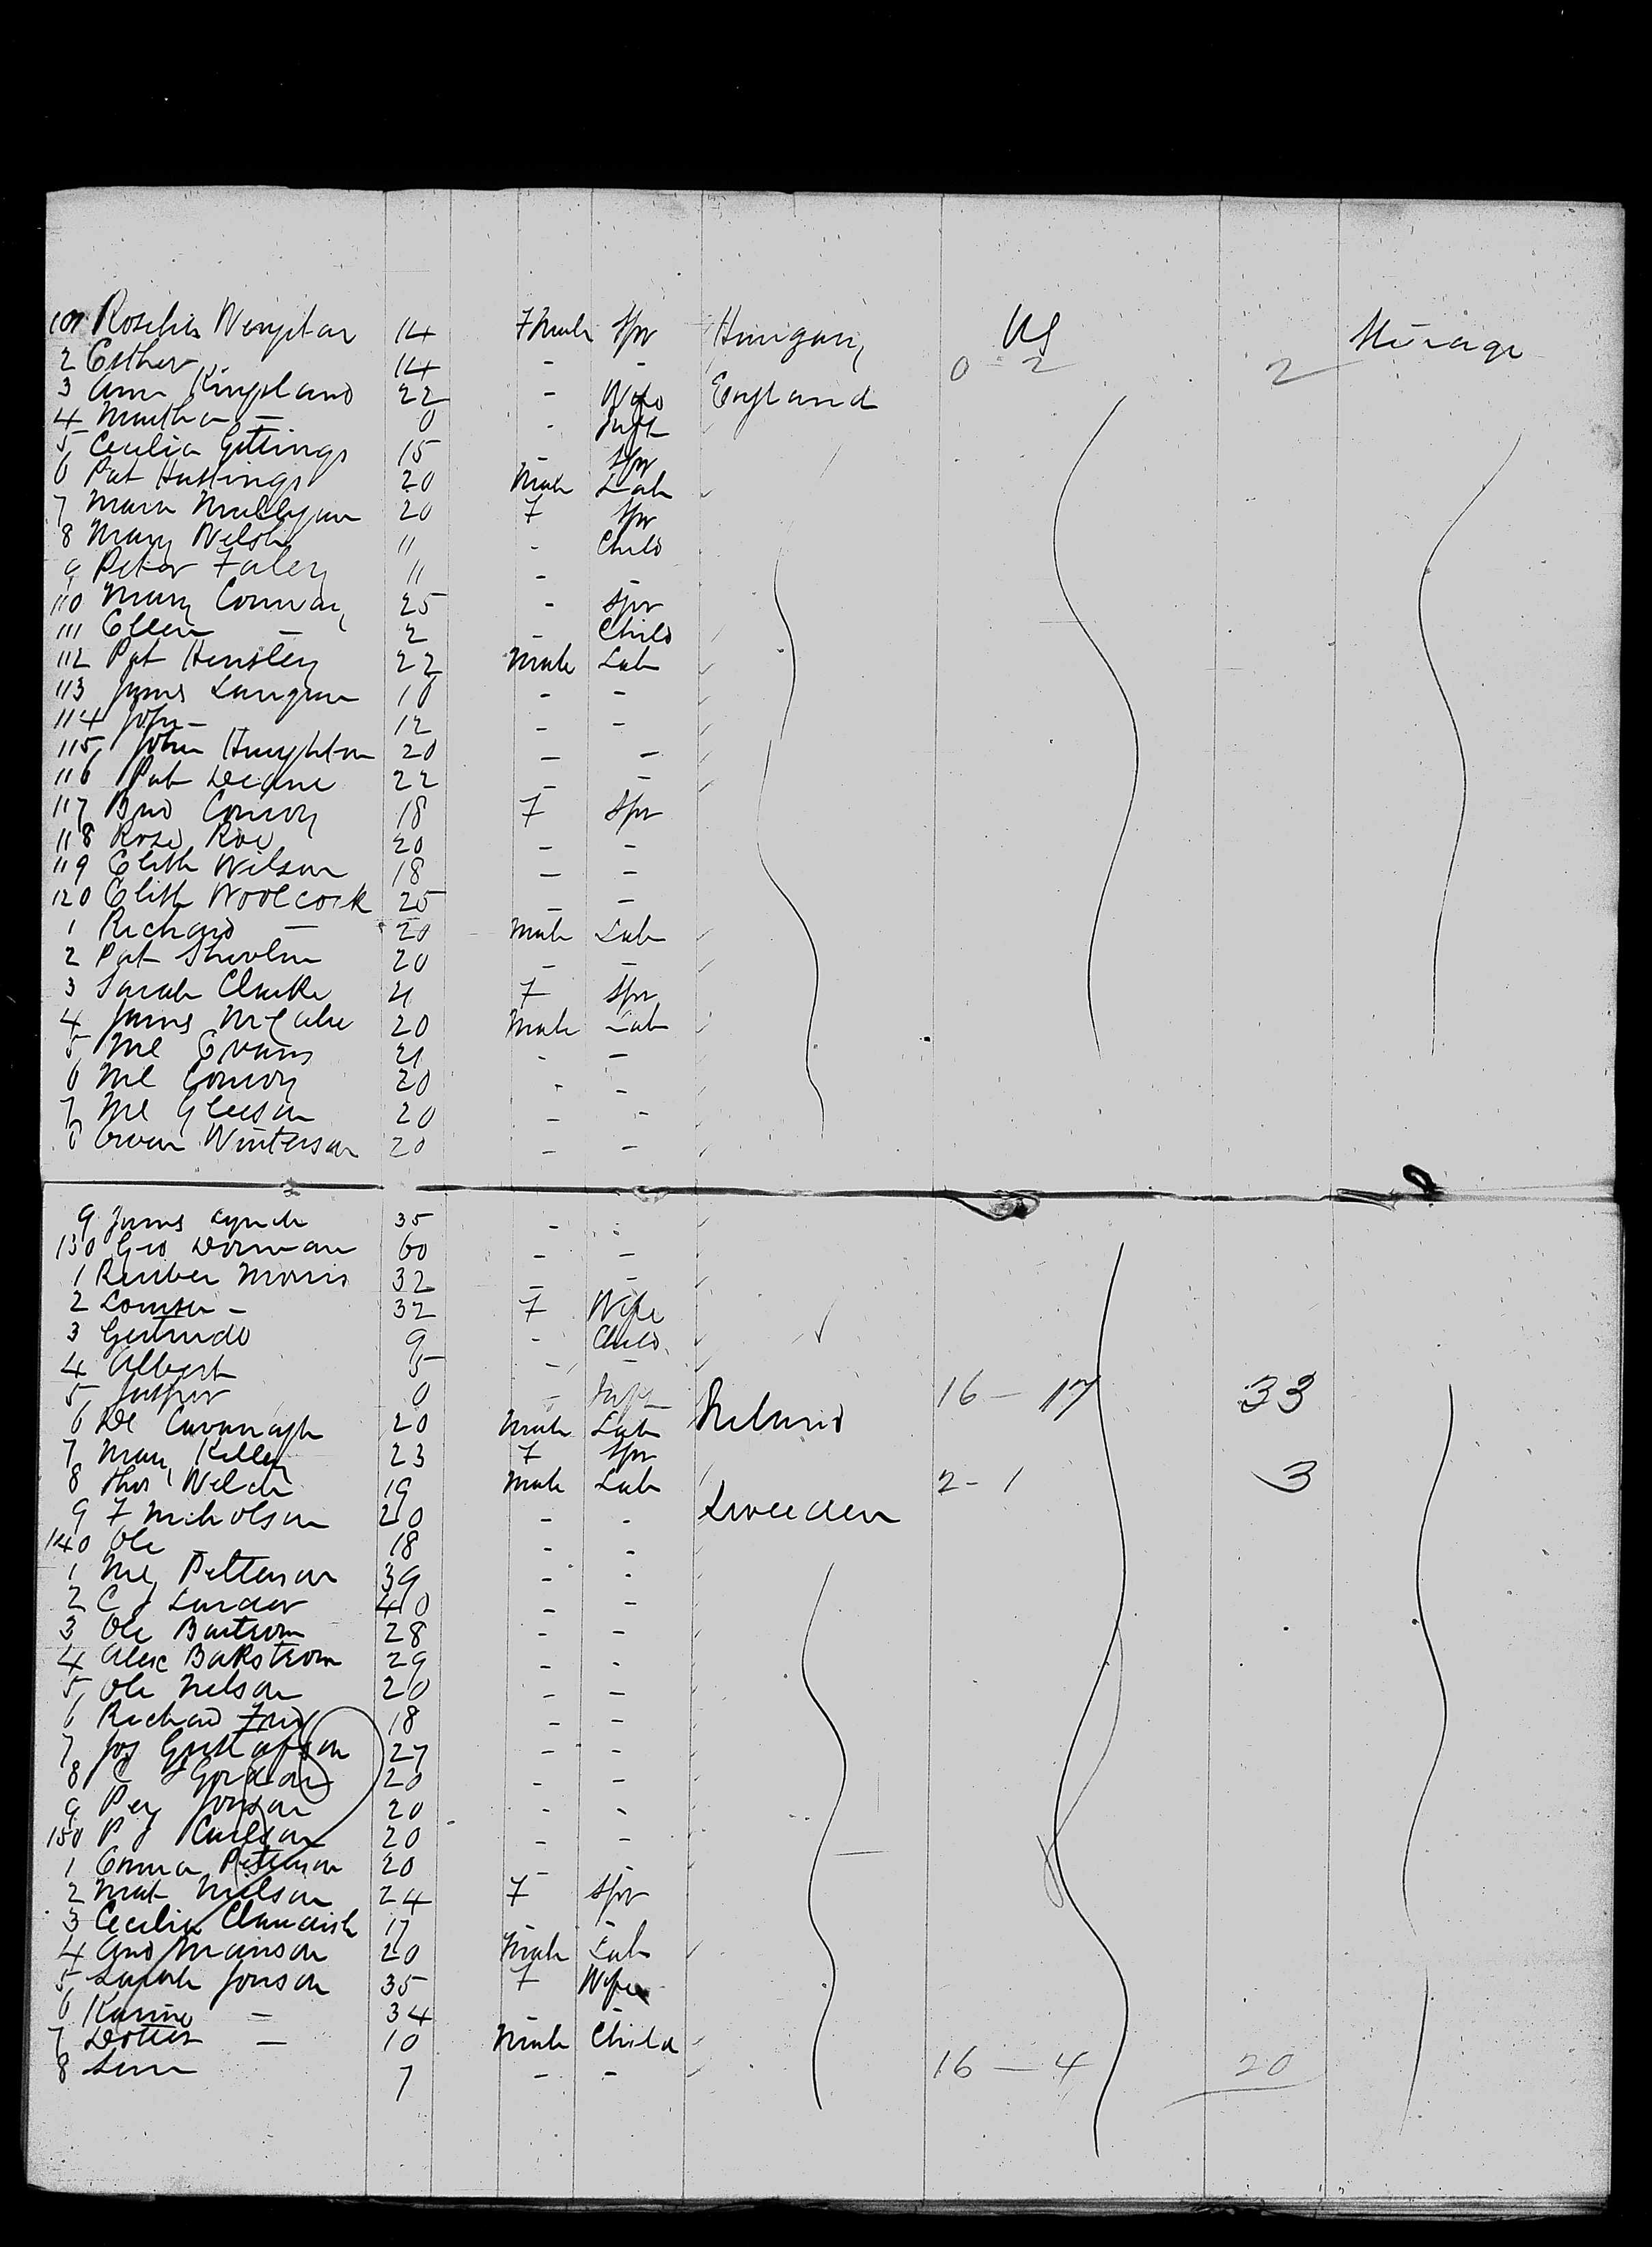 101 14 Female Spr Hungary US Steerage
2 Esther 14 - - 0 - 2 2
3 Ann Kingsland 22 - Wife England
4 Martha - 0 - Inft
5 Cecilia Gittings 15 - Spr
6 Pat Hastings 20 Male Lab
7 Maria Mulligan 20 F Spr
8 Mary Welsh 11 - Child
9 Peter Foley 11 - -
110 Mary Conway 25 - Spr
111 Ellen - 2 - Child
112 Pat Hensley 22 Male Lab
113 James Langan 16 - -
114 John - 12 - -
115 John Haughton 20 - -
116 Pat Deane 22 - -
117 Brid Conroy 18 F Spr
118 Rose Roe 20 - -
119 Elith Wilson 18 - -
120 Elith Woolcock 25 - -
1 Richard - 20 Male Lab
2 Pat 20 - -
3 Sarah Clarke 21 F Spr
4 James McCabe 20 Male Lab
5 Ml Evans 21 - -
6 Ml Conroy 20 - -
7 Ml Gleeson 20 - -
8 Owen Winterson 20 - -
9 James Lynch 35 - -
130 Geo Dorman 60 - -
1 Reuben Morris 32 - -
2 Louisa - 32 F Wife
3 Gertrude 9 - Child
4 Albert 5 - -
5 0 - Inft 16 - 17 33
6 Cavanagh 20 Male Lab Ireland
7 Mary Kelly 23 F Spr
8 Thos Welch 19 Male Lab 2 - 1 3
9 F Nicholson 20 - - Sweeden
140 Ole 18 - -
1 Petterson 39 - -
2 C J 40 - -
3 Ole 28 - -
4 Alex Bakstrom 29 - -
5 Ole Nelson 20 - -
6 Richard 18 - -
7 Jos Gustafson 27 - -
8 C 20 - -
9 Per Jonson 20 - -
150 P J Carlson 20 - -
1 Emma Peterson 20 - -
2 Mat Nilson 24 F Spr
3 Cecilia 17 - -
4 And Manson 20 Male Lab
5 Sarah Jonson 35 F Wife
6 Karine - 34 - -
7 - 10 Male Child
8 7 - - 16 - 4 20